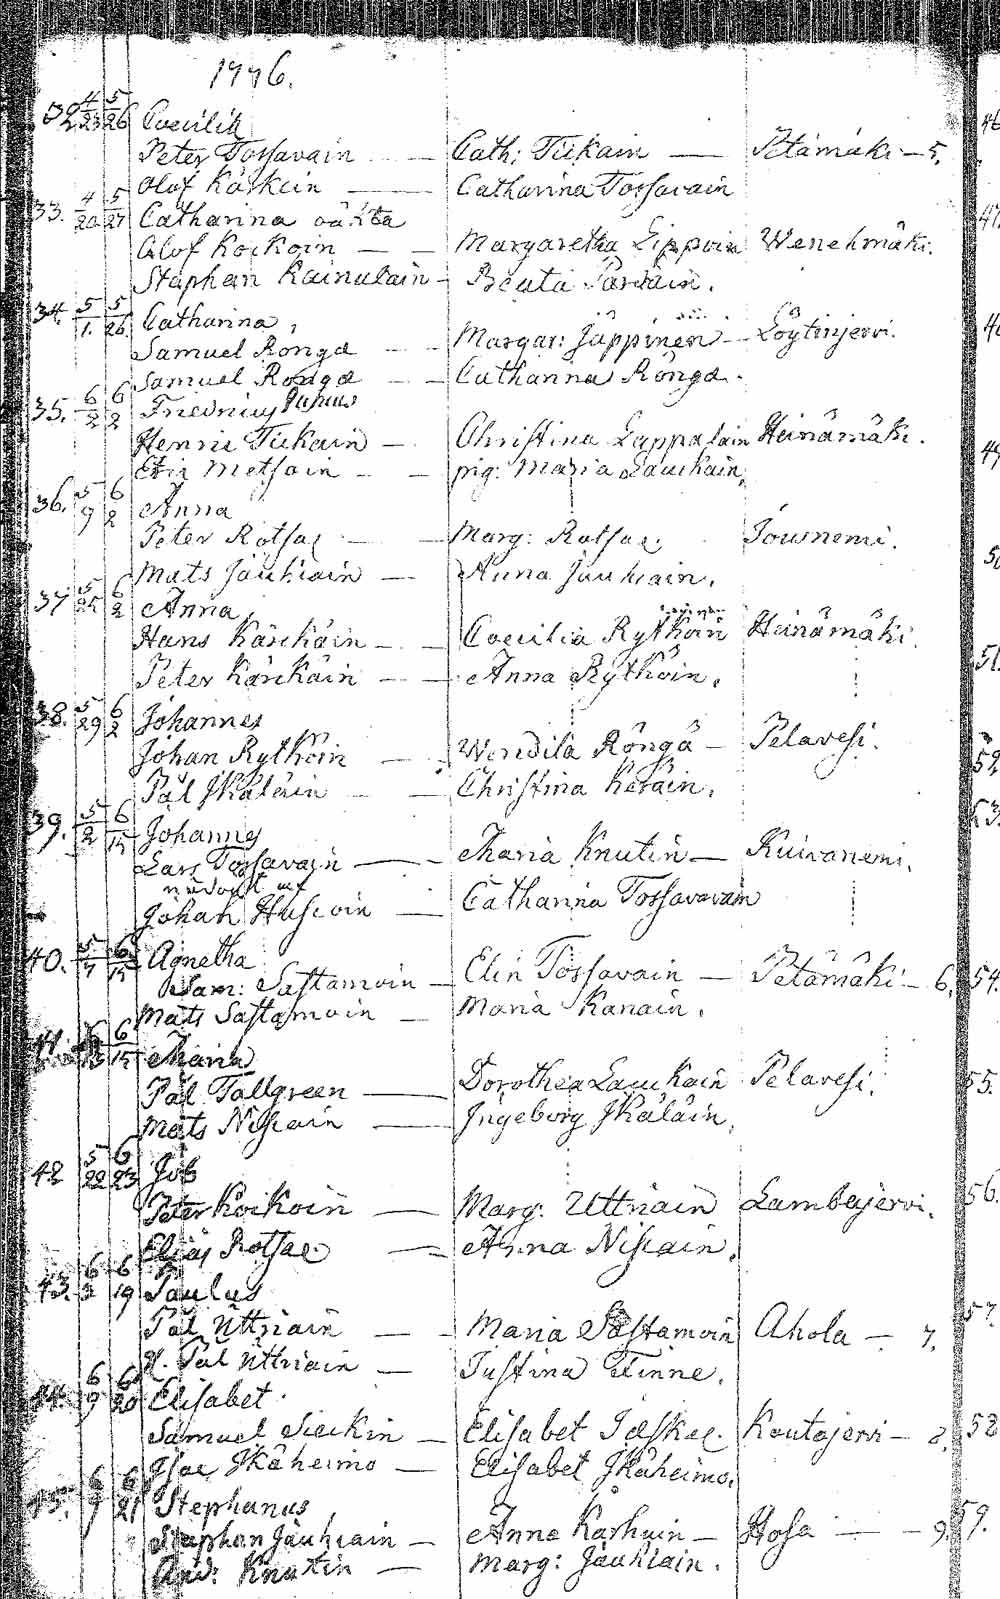 1776.
32 4/23 5/26 Caecilia
Peter Tossavain — Cath: Tiikain — Petämäki — 5.
Olof Käskein — Catharina Tossavain
33. 4/20 5/27 Catharina oäkta
Olof Koikoin — Margaretha Lippoin Wenehmäki.
Staphan Kainulain — Beata
34. 5/1. 5/26 Catharina,
Samuel Rönga — Margar: Jäppinen — Löytinjervi.
Samuel Rönga — Catharina Rönga.
35. 6/2 6/2 Friedrich Junius
Henric Tiikain — Christina Lappalain Heinämäki.
Eric Metsoin — pig: Maria Laukain,
36. 5/9 6/2 Anna
Peter Rotsae — Marg: Rotsae. Jousnemi.
Mats Jauhiain — Anna Jauhiain.
37 5/25 6/2 Anna,
Hans Kärckäin — Caecilia Rythöin Heinämäki.
Peter Kärckäin — Anna Rythöin.
38. 5/29 6/2 Johannes
Johan Rythöin — Wendila Röngä — Pelavesi.
Pål Skäläin — Christina Keräin.
39. 5/2 6/15 Johannes
Lars Tossavain — Maria Knutin — Kuivanemi.
Johan Huscoin — Catharina Tossavavain
40. 5/7 6/15 Agnetha
Sam: Sastamoin — Elin Tossavain — Petämäki — 6.
Mats Sastamoin — Maria Kanain.
41 6/15 Maria
Pål Tallgreen — Dorothea Laukain Pelavesi.
Mats Niscain — Ingeborg Skäläin.
42 5/22 6/23 Job
Peter Koikoin — Marg: Uttriain Lambajervi.
Elias Rotsae — Anna Niscain.
43. 6/2 6/19 Paulus
Pål Uttriain — Maria Sastamoin Ahola — 7.
H. Pål Uttriain — Justina Finne.
44. 6/9 6/20 Elisabet.
Samuel Sieckin — Elisabet Koutajervi — 8.
Isac Skäheimo — Elisabet Skäheimo.
45. 6/9 6/21 Stephanus
Staphan Jauhiain — Anna Karhuin — Hosa — 9.
And: Knutin — Marg: Jauhiain.
46
47.
49
50
51.
52
53.
54.
55.
56.
57.
58
59.